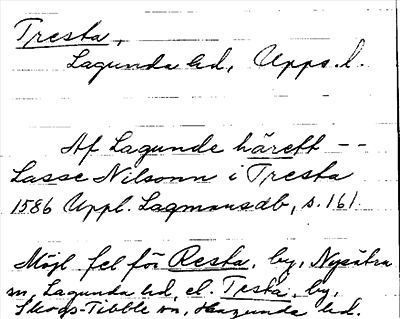 Tresta,
Lagunda hd, Upps. l.
Af Lagunde härett --
Lasse Nilsonn i Tresta
1586 Uppl. Lagmansdb, s. 161
Möjl fel för Resta, by, Nysätra
sn, Lagunda hd, el. Testa, by,
Skogs-Tibble sn, Hagunda hd.